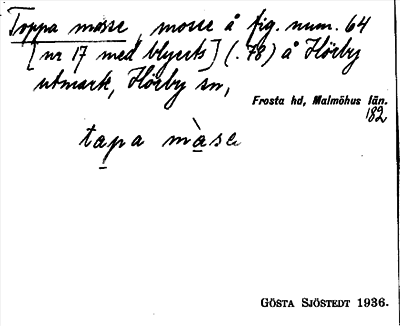 Toppa mosse, mosse å fig. num. 64
[nr 17 med blyerts] (.78) å Hörby
utmark, Hörby sn,
Frosta hd, Malmöhus län.
182
tapa màse
GÖSTA SJÖSTEDT 1936.